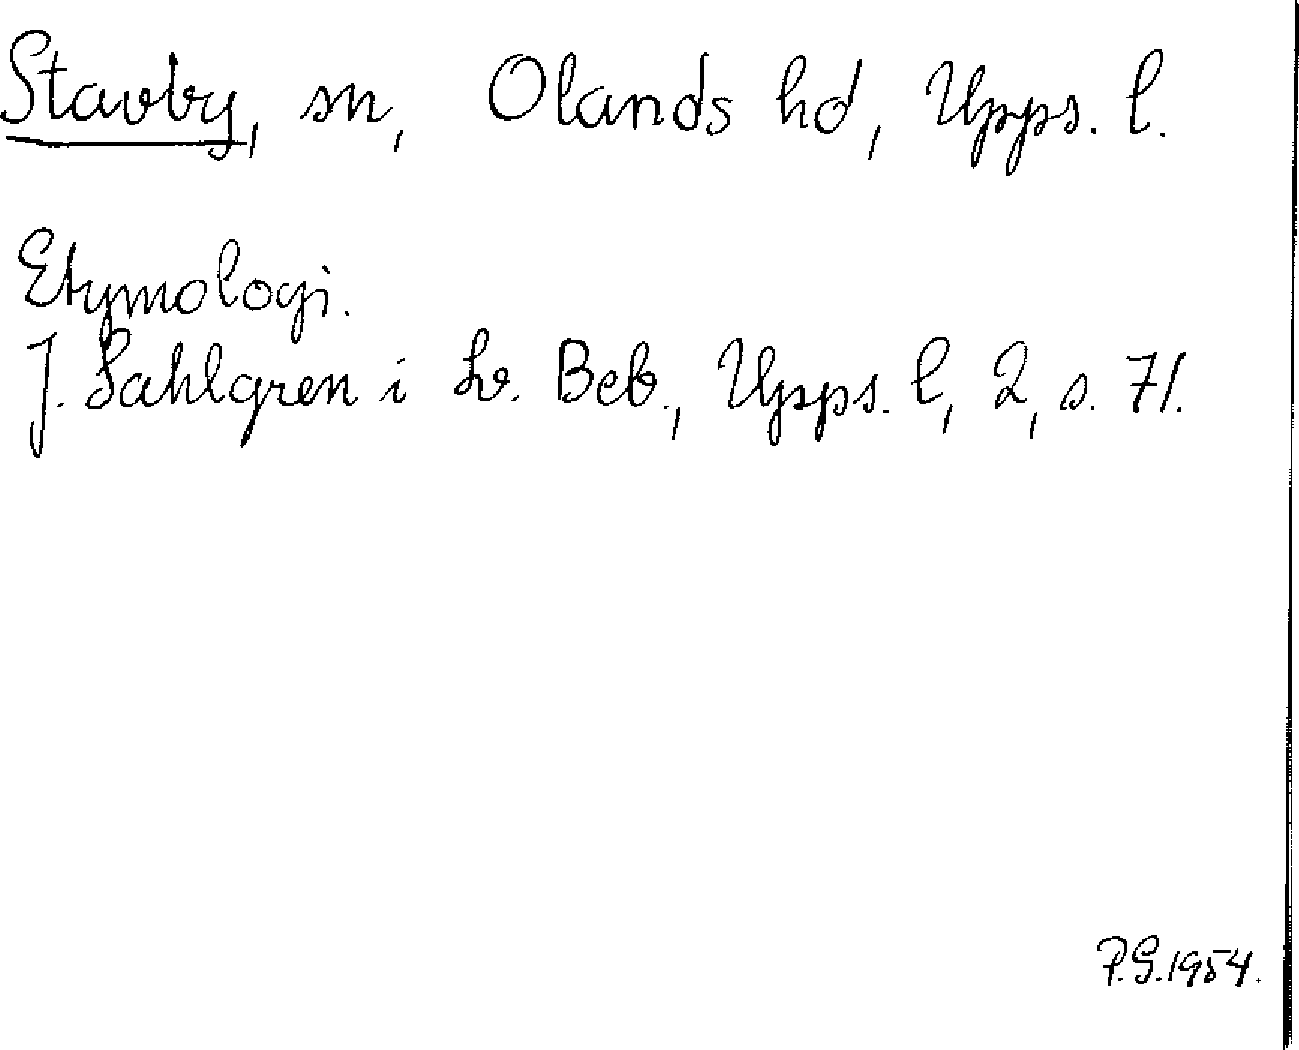 Stavby, sn, Olands hd, Upps. l.
Etymologi.
J. Sahlgren i Sv. Beb., Upps. l, 2, s. 71.
P.G. 1954.